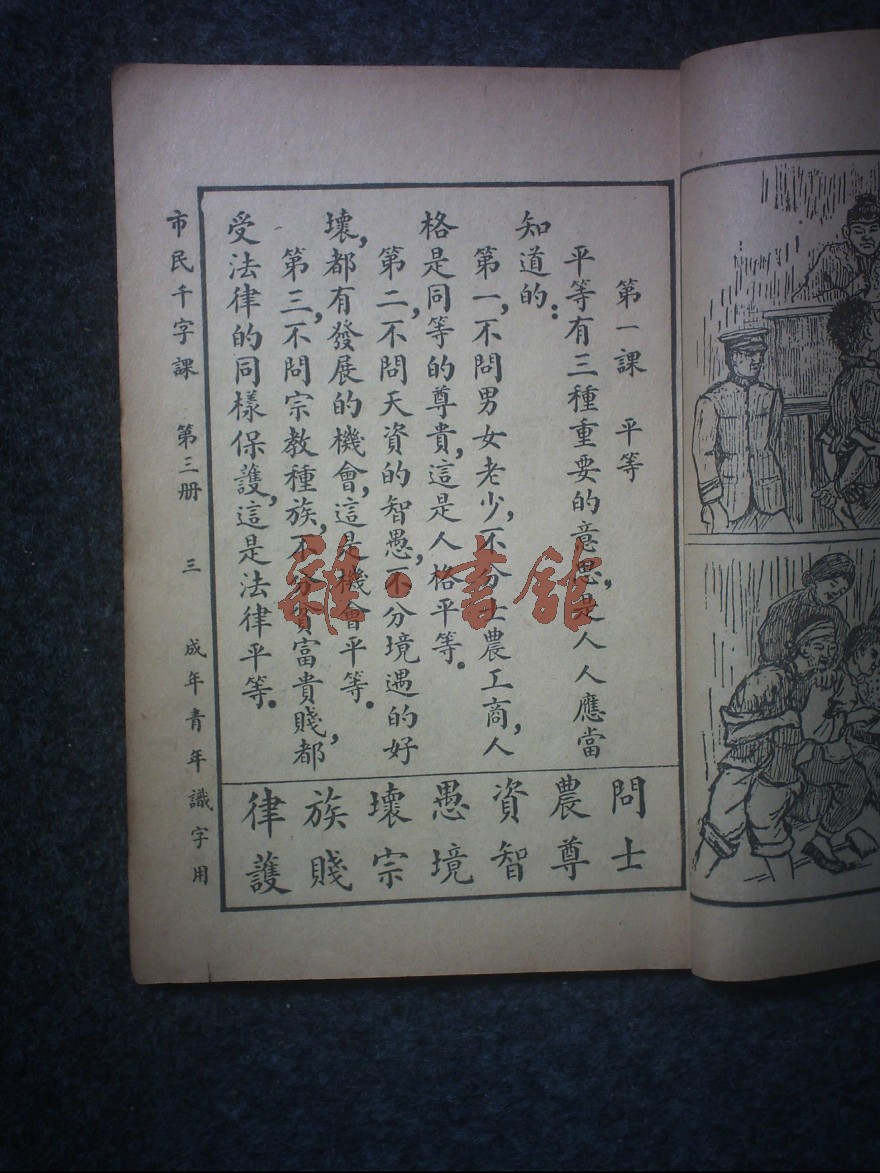 第一課　平等
平等有三種重要的意思，是人人應當
知道的：
第一，不問男女老少，不分士農工商，人
格是同等的尊貴，這是人格平等。
第二，不問天資的智愚，不分境遇的好
壞，都有發展的機會，這是機會平等。
第三，不問宗教種族，不分貧富貴賤，都
受法律的同樣保護，這是法律平等。
問士
農尊
資智
愚境
壞宗
族賤
律護
市民千字課　第三册　三　成年青年識字用
雜·書館